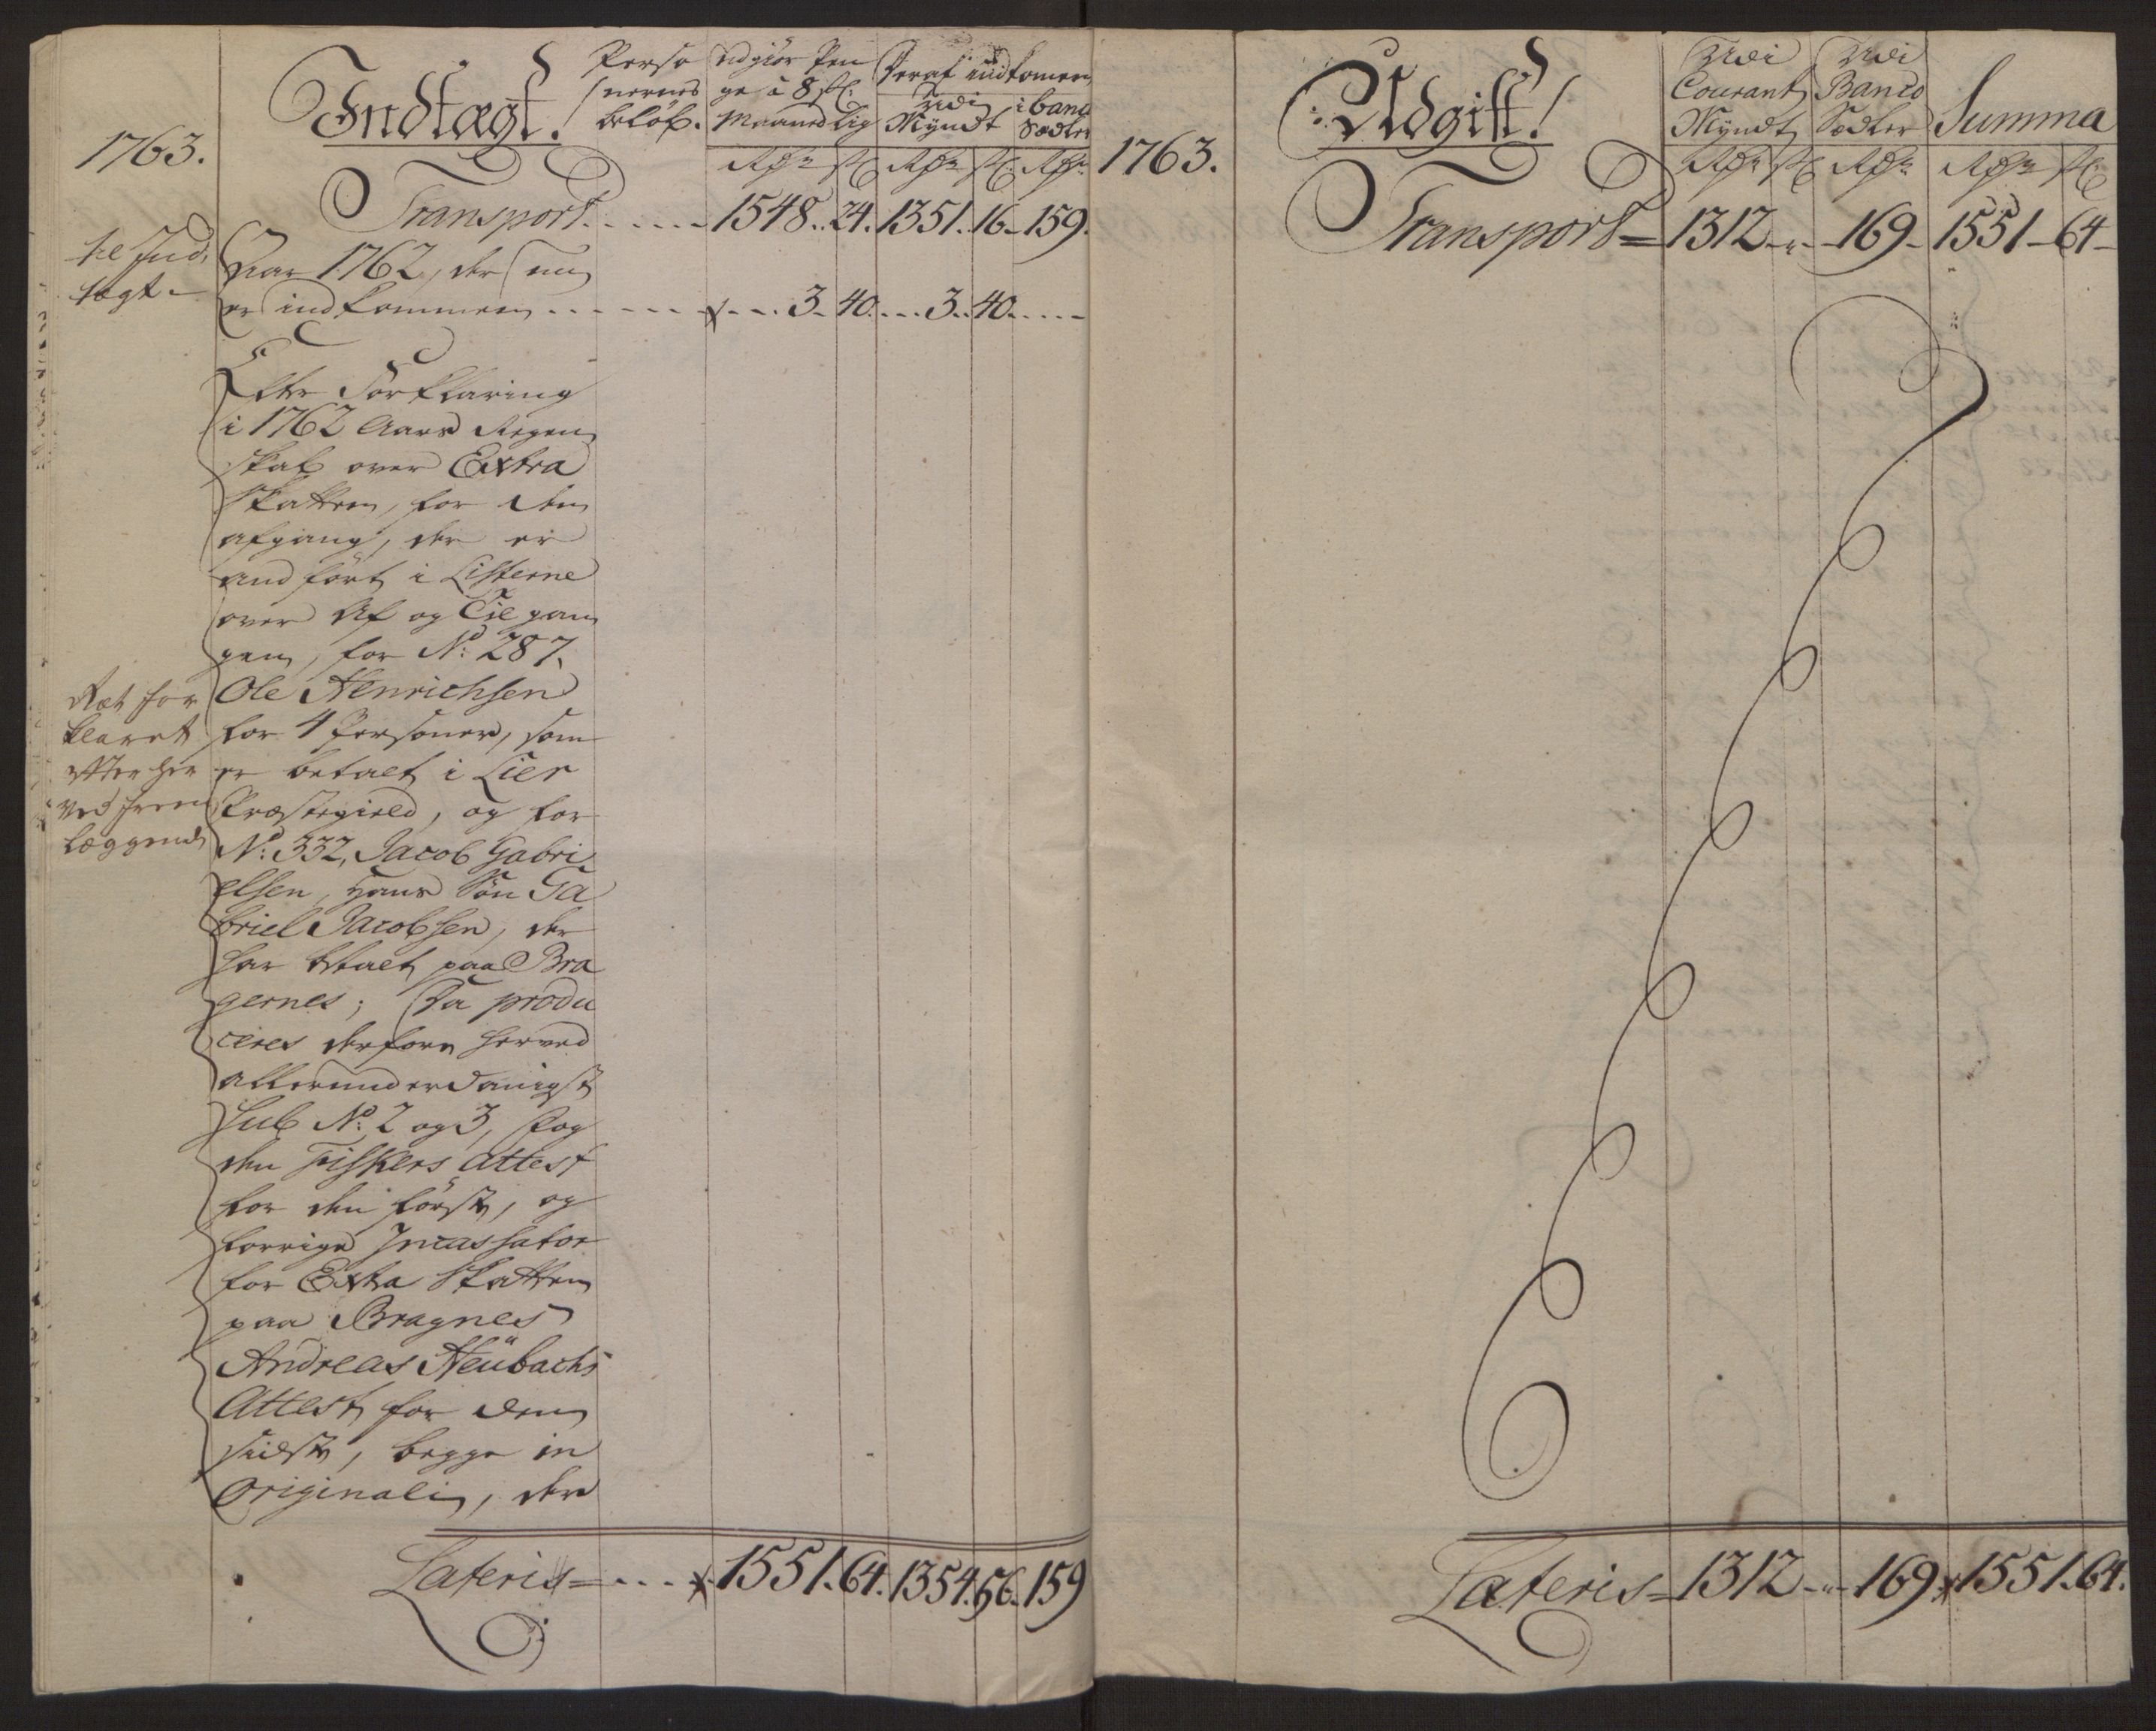 1763.
Indtægt!
Perso
nernes
beløb.
udgiør Pen
ge à 8 s:
Maanedlig
Deraf indkomen
udi
Myndt
i banc
Sedler
Rdr s Rdr s Rdr
Transport. 1548. 24. 1351. 16. 159.
til Ind,
tægt.
for 1762, der nu
er indkommen 3. 40. 3. 40.
Efter Forklaring
i 1762 Aars Regen
skab over Extra
Skatten, for den
afgang, der er
andført i Listerne
over Af og Til gan
gen, for No: 287.
Ole Henrichsen
for 4 Personer, som
er betalt i Lier
Præstegield, og for
No: 332, Jacob Gabri,
elsen, Hans Søn Ga
briel Jacobsen, der
har betalt paa Bra
gernes; Saa produ
ceres derfore herved
allerunderdanigst
Sub No: 2 og 3, Fog
den Fiskers Attest
for den første, og
forrige Incassator
for Extra Skatten
paa Bragnes
Andreas Neübachs
Attest for den
sidste, begge in
Originali, der
Ræt for
klaret
efter her
ved frem
læggende
Lateris = 1551. 64. 1354. 56. 159
1763.
Udgift!
Udi
Courant
Myndt
Udi
Banco
Sedler
Summa
Rdr s Rdr Rdr s
Transport = 1312 - " - 169 - 1551 - 64 -
Lateris = 1312 - " - 169 1551. 64.